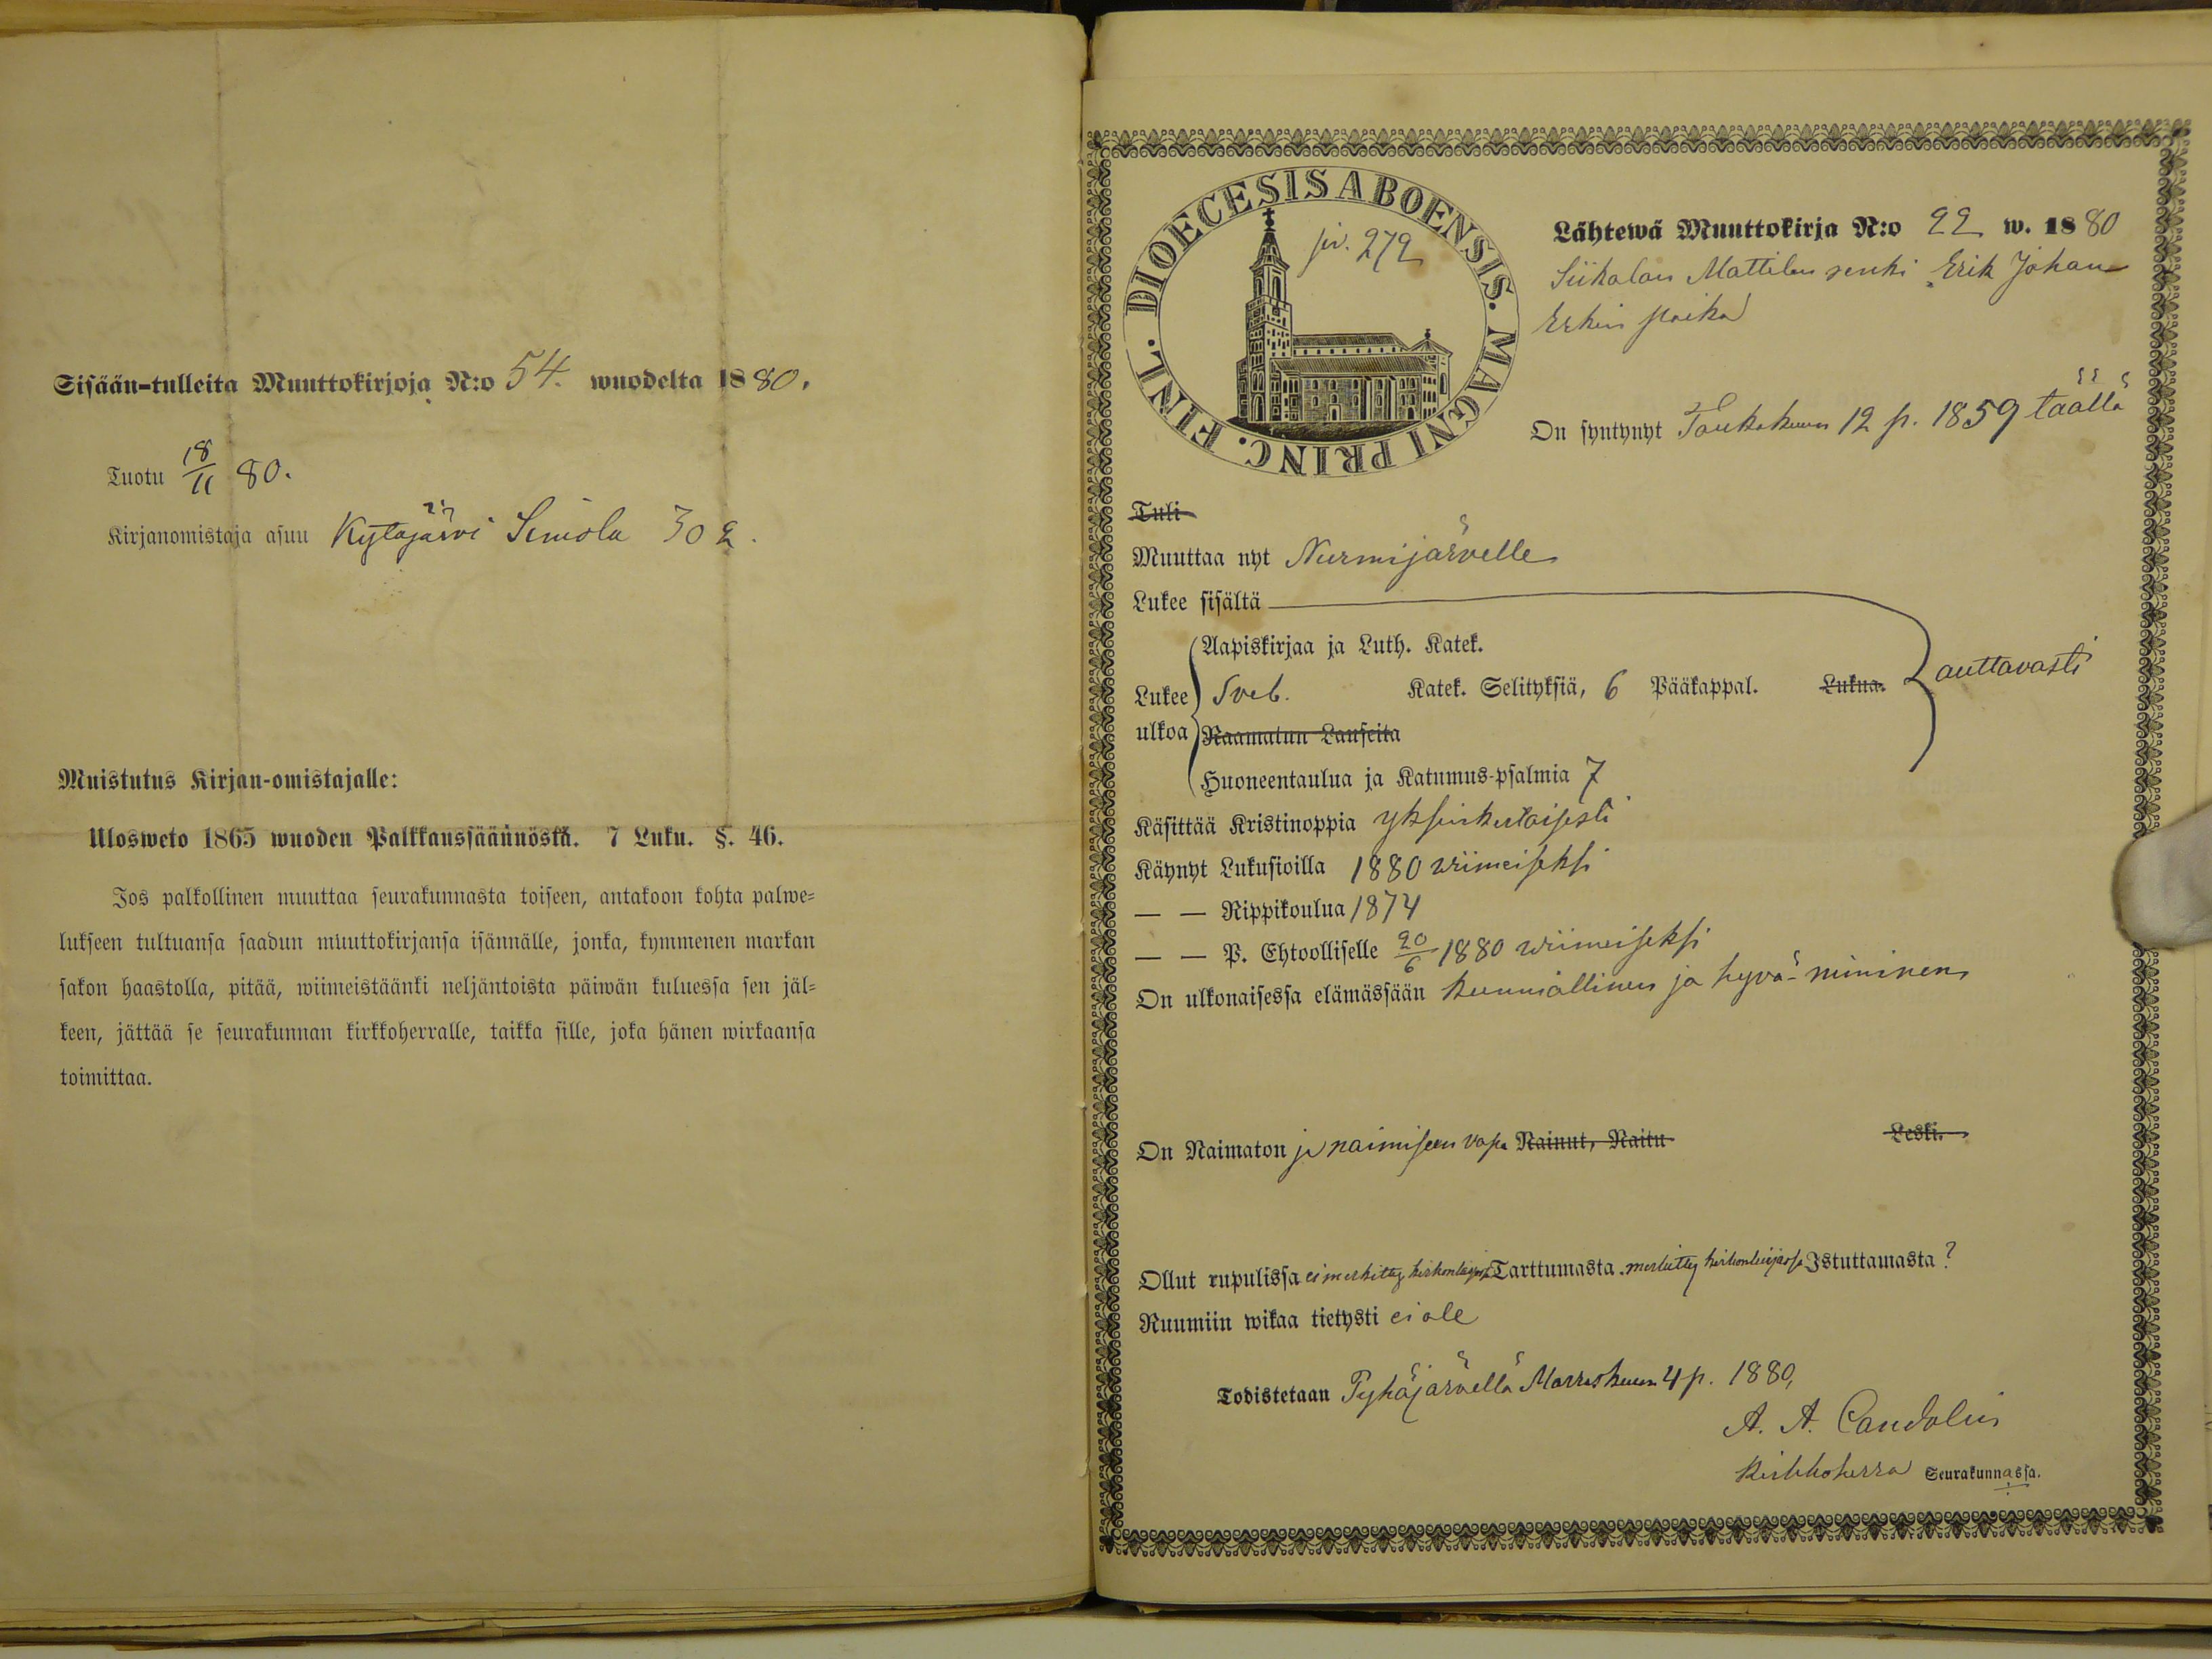 Sisään-tulleita Muuttokirjoja N:o 54. wuodelta 1880.
Tuotu 18/11 80.
Kirjanomistaja asuu Kytäjärvi Seniola 302.
Muistutus Kirjan-omistajalle:
Ulosweto 1865 wuoden Palkkaussäännöstä. 7 Luku. §. 46.
Jos palkollinen muuttaa seurakunnasta toiseen, antakoon kohta palwe=
lukseen tultuansa saadun muuttokirjansa isännälle, jonka, kymmenen markan
sakon haastolla, pitää, wiimeistäänki neljäntoista päiwän kuluessa sen jäl=
keen, jättää se seurakunnan kirkkoherralle, taikka sille, joka hänen wirkaansa
toimittaa.
DIOECESIS ABOENSIS. MAGNI PRINC. FINL.
siv. 272
Lähtewä Muuttokirja N:o 22 w. 1880
Siikalan Mattilan renki Erik Johan
Erkin poika
On syntynyt Toukokuun 12 p. 1859 täällä
Tuli
Muuttaa nyt Nurmijärvelle
Lukee sisältä
Aapiskirjaa ja Luth. Katek.
Lukee Sveb. Katek. Selityksiä, 6 Pääkappal. Lukua. auttavasti
ulkoa Raamatun Lauseita
Huoneentaulua ja Katumus-psalmia 7
Käsittää Kristinoppia yksinkertaisesti
Käynyt Lukusioilla 1880 viimeiseksi
— — Rippikoulua 1874
— — P. Ehtoolliselle 20/6 1880 wiimeiseksi
On ulkonaisessa elämässään kunniallinen ja hyvä-niminen
On Naimaton ja naimiseen vapa Nainut, Naitu Leski.
Ollut rupulissa ei merkitty kirkonkirjassa Tarttumasta merkitty kirkonkirjassa Istuttamasta?
Ruumiin wikaa tietysti ei ole
Todistetaan Pyhäjärvellä Marraskuun 4 p. 1880,
A. A. Candolin
Kirkkoherra Seurakunnassa.